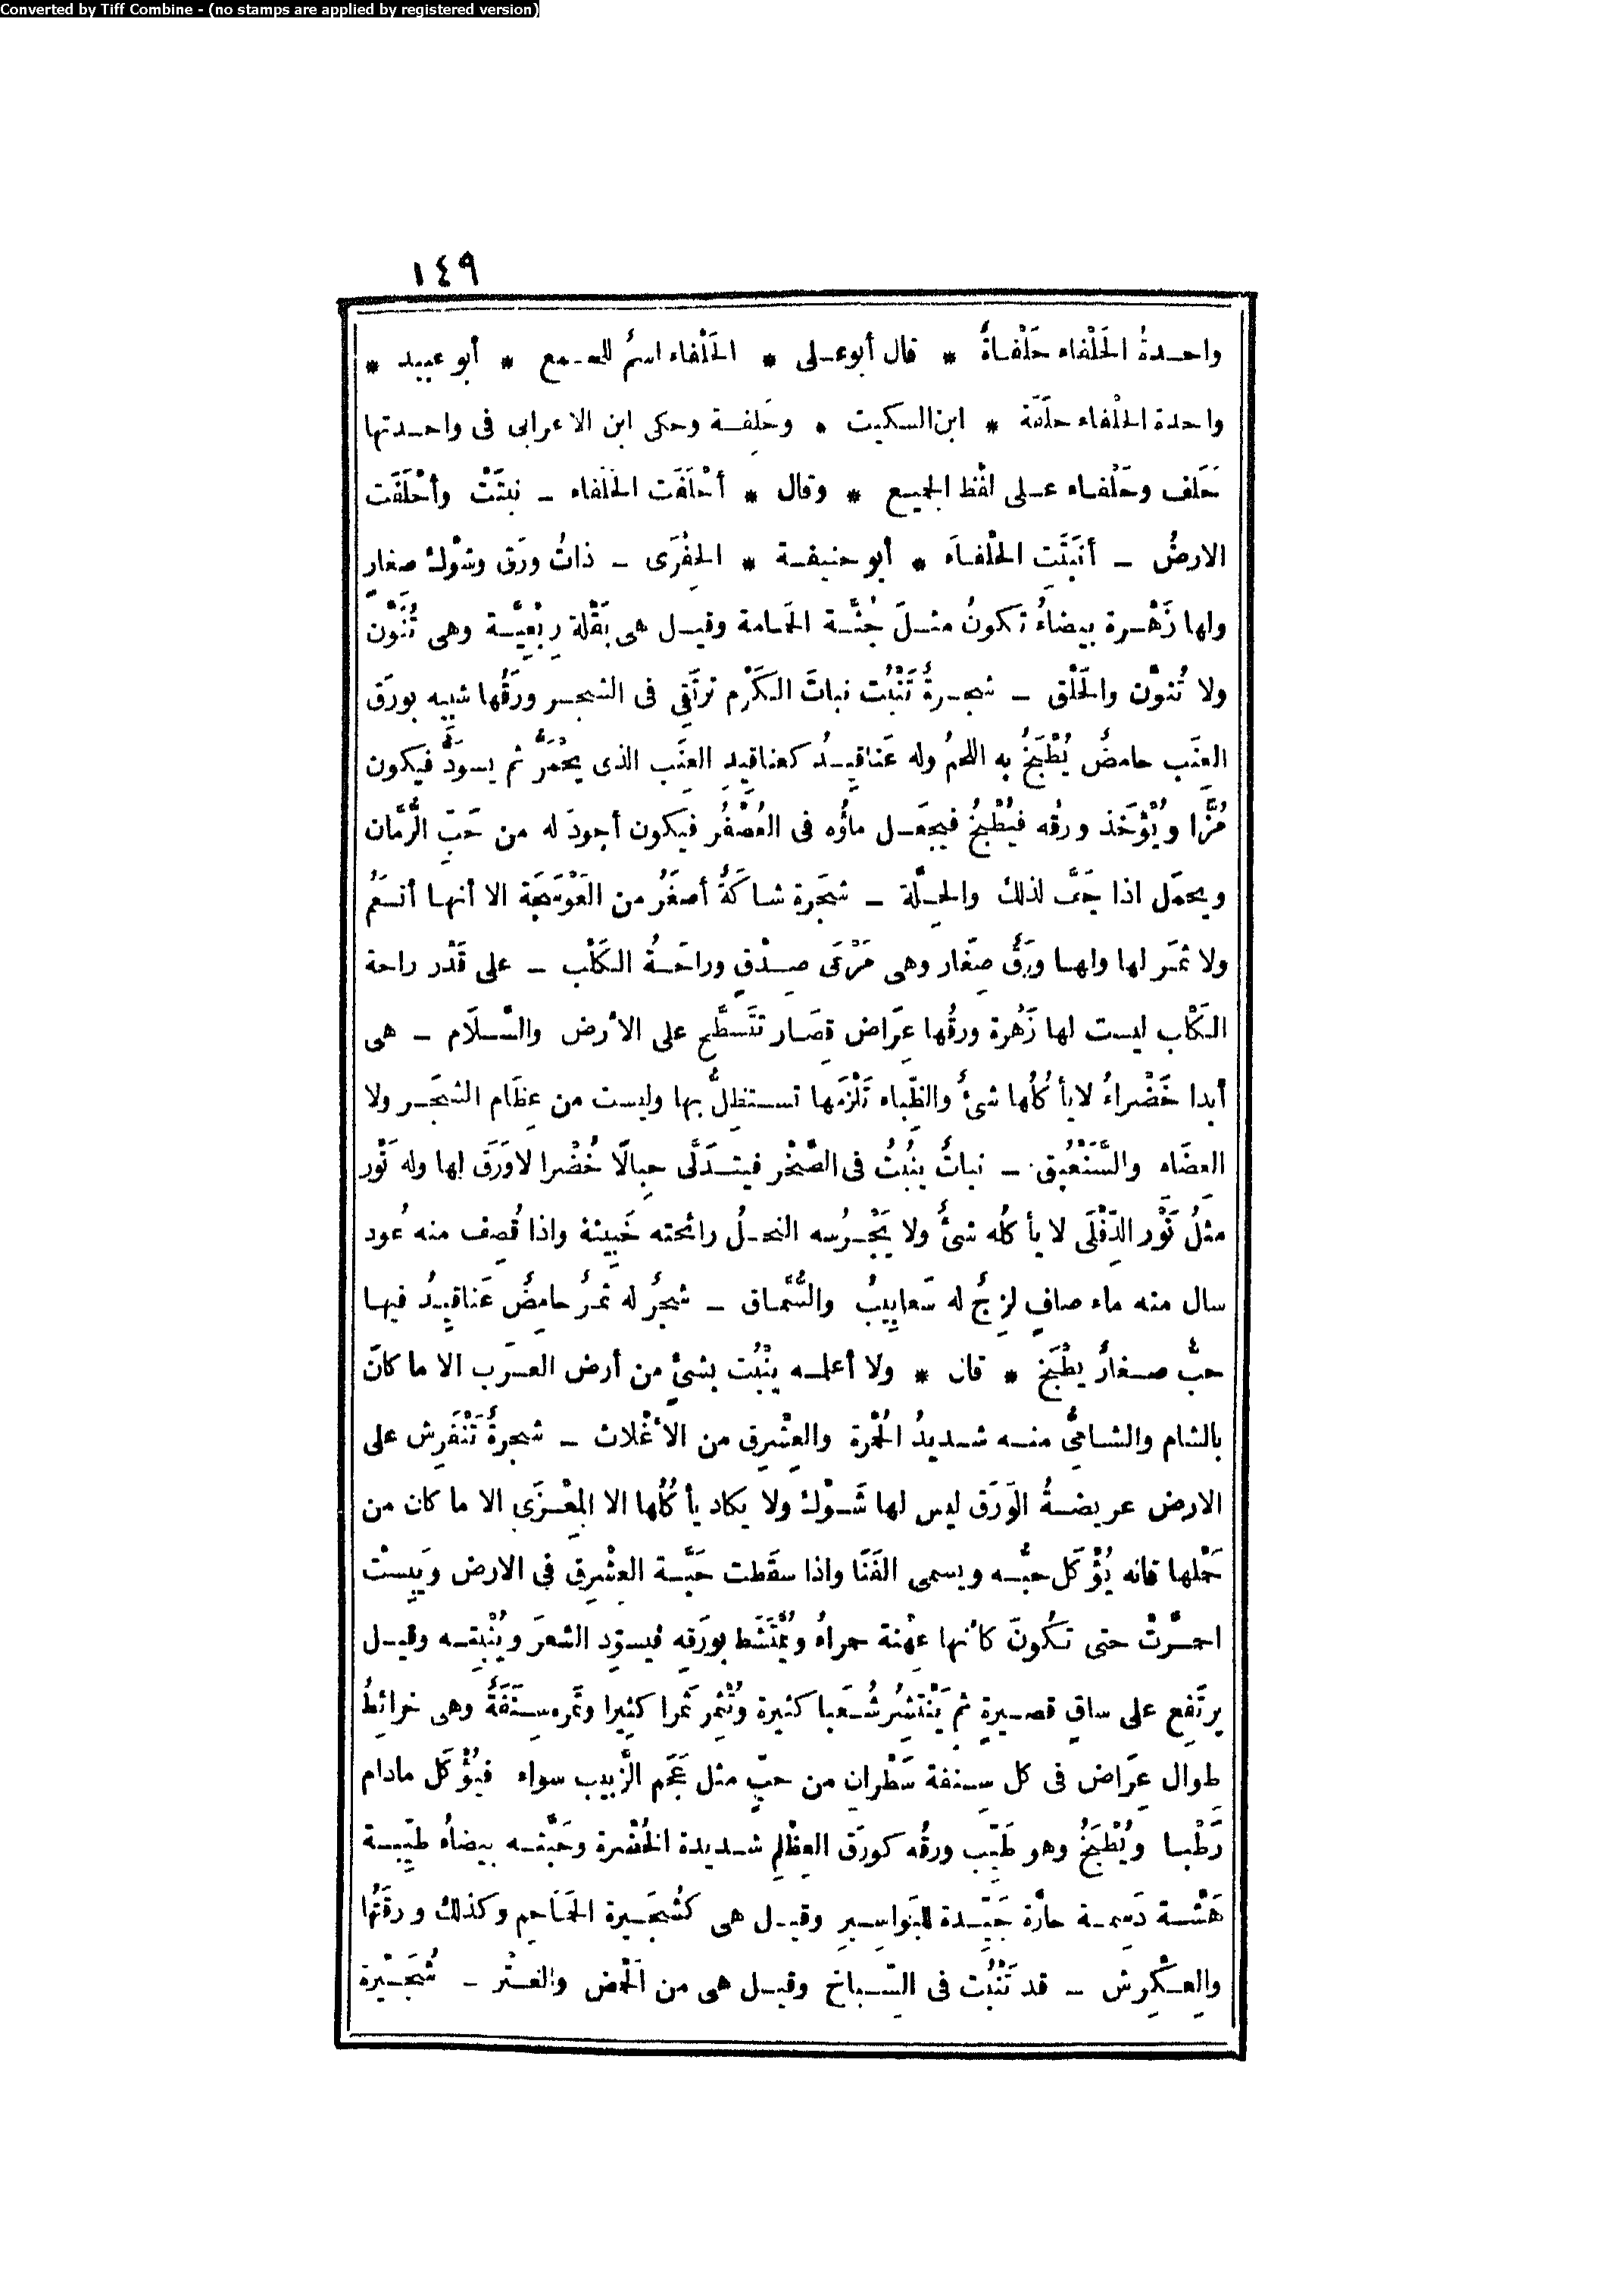 Converted by Tiff Combine - (no stamps are applied by registered version)
١٤٩
واحدةُ الحَلْفاء حَلْفاةٌ * قال أبوعلى * الحَلْفاء اسمُ للجمع * أبو عبيد *
واحدة الحَلْفاء حلَفَة * ابن السكيت * وحَلِفة وحكى ابن الاعرابى فى واحدتها
حَلَف وحَلْفاء على لفْظ الجميع * وقال * أحْلَفَت الحَلْفاء - نبتَتْ وأحْلَفَت
الارضُ - أنبَتَتِ الحلْفاَء * أبو حنيفة * الحِفْرَى - ذاتُ ورَق وشَوْك صغارٍ
ولها زَهْرة بيضاءُ تكونُ مثلَ جُثَّة الحَمامة وقيل هى بَقْلة رِبْعِيَّة وهى تُنَوَّن
ولا تُنوَّن والحَلْق - شجرةٌ تَنْبُت نباتَ الكَرْم ترتَقِى فى الشجر ورَقُها شبِيه بورَق
العِنَب حامضٌ يُطْبَخُ به اللحمُ وله عَناقِيدُ كعناقيدِ العِنَب الذى يحْمَرُّ ثم يسودُّ فيكون
مُزًّا ويُؤْخَذ ورقُه فيُطْبخُ فيجعَل ماؤُه فى العُصْفُر فيكون أجودَ له من حَبِّ الرُّمَّان
ويحمَل اذا جَفَّ لذلك والحِلَّة - شجَرة شاكَةٌ أصغَرُ من العَوْسَجَة الا أنها أنعَمُ
ولا ثمَر لها ولها ورَقٌ صِغَار وهى مَرْعَى صِدْقٍ وراحَةُ الكَلْب - على قَدْر راحة
الكَلْب ليست لها زَهْرة ورقُها عِرَاض قِصَار تتَسَطَّح على الأرض والسَّلَام - هى
أبدا خَضْراءُ لايأكُلُها شئٌ والظِّباء تَلْزَمها تستظِلُّ بها وليست من عِظَام الشجَر ولا
العضَاه والسَّنَعْبُق - نباتٌ ينبُتُ فى الصَّخْر فيتدَلَّى حِبالًا خُضْرا لاوَرَقَ لها وله نَوْر
مثلُ نَوْر الدِّفْلَى لا يأكلُه شئٌ ولا يَجْرُسه النحلُ رائحته خَبِيثة واذا قُصِف منه عُود
سال منه ماء صافٍ لزِجٌ له سَعابِيبُ والسُّمَّاق - شجرٌ له ثمرٌ حامِضٌ عَناقِيدُ فيها
حبٌّ صغارٌ يطْبَخ * قال * ولا أعلمه ينْبُت بشئٍ من أرض العرَب الا ما كانَ
بالشام والشامىُّ منه شديدُ الحُمْرة والعِشْرِق من الأغْلاث - شجرةٌ تَنْفَرِش على
الارض عريضةُ الوَرَق ليس لها شَوْك ولا يكاد يأكُلُها الا المِعْزَى الا ما كان من
حَمْلها فانه يُؤْكَل حبُّه ويسمى الفَنَا واذا سقَطت حَبَّة العشْرِق فى الارض ويَبِسْت
احمَرَّتْ حتى تكُونَ كأنها عِهْنة حمراءُ ويُمْتَشَط بورَقِه فيسوِّد الشعرَ ويُنْبِته وقيل
يرتَفِع على ساقٍ قصيرةٍ ثم يَنْتَشِرُ شُعَبا كثيرة وتُثْمِر ثَمرا كثيرا وثَمره سِنَفَةٌ وهى خرائطُ
طوال عِرَاض فى كل سِنفة سَطْرانِ من حبٍّ مثل عَجَم الزَّبيب سواء فيُؤْكَل مادام
رَطْبا ويُطْبَخُ وهو طَيِّب ورقُه كورَق العِظْلِم شديدة الخُضْرة وحَبَّته بيضاء طيِّبة
هَشَّة دَسِمة حارّة جَيِّدة للبَواسِيرِ وقيل هى كشُجَيرة الحَمَاحِم وكذلك ورقَتُها
والعِكْرِش - قد تَنْبُت فى السِّباخ وقيل هى من الحَمْض والغسْر - شُجَيْرة